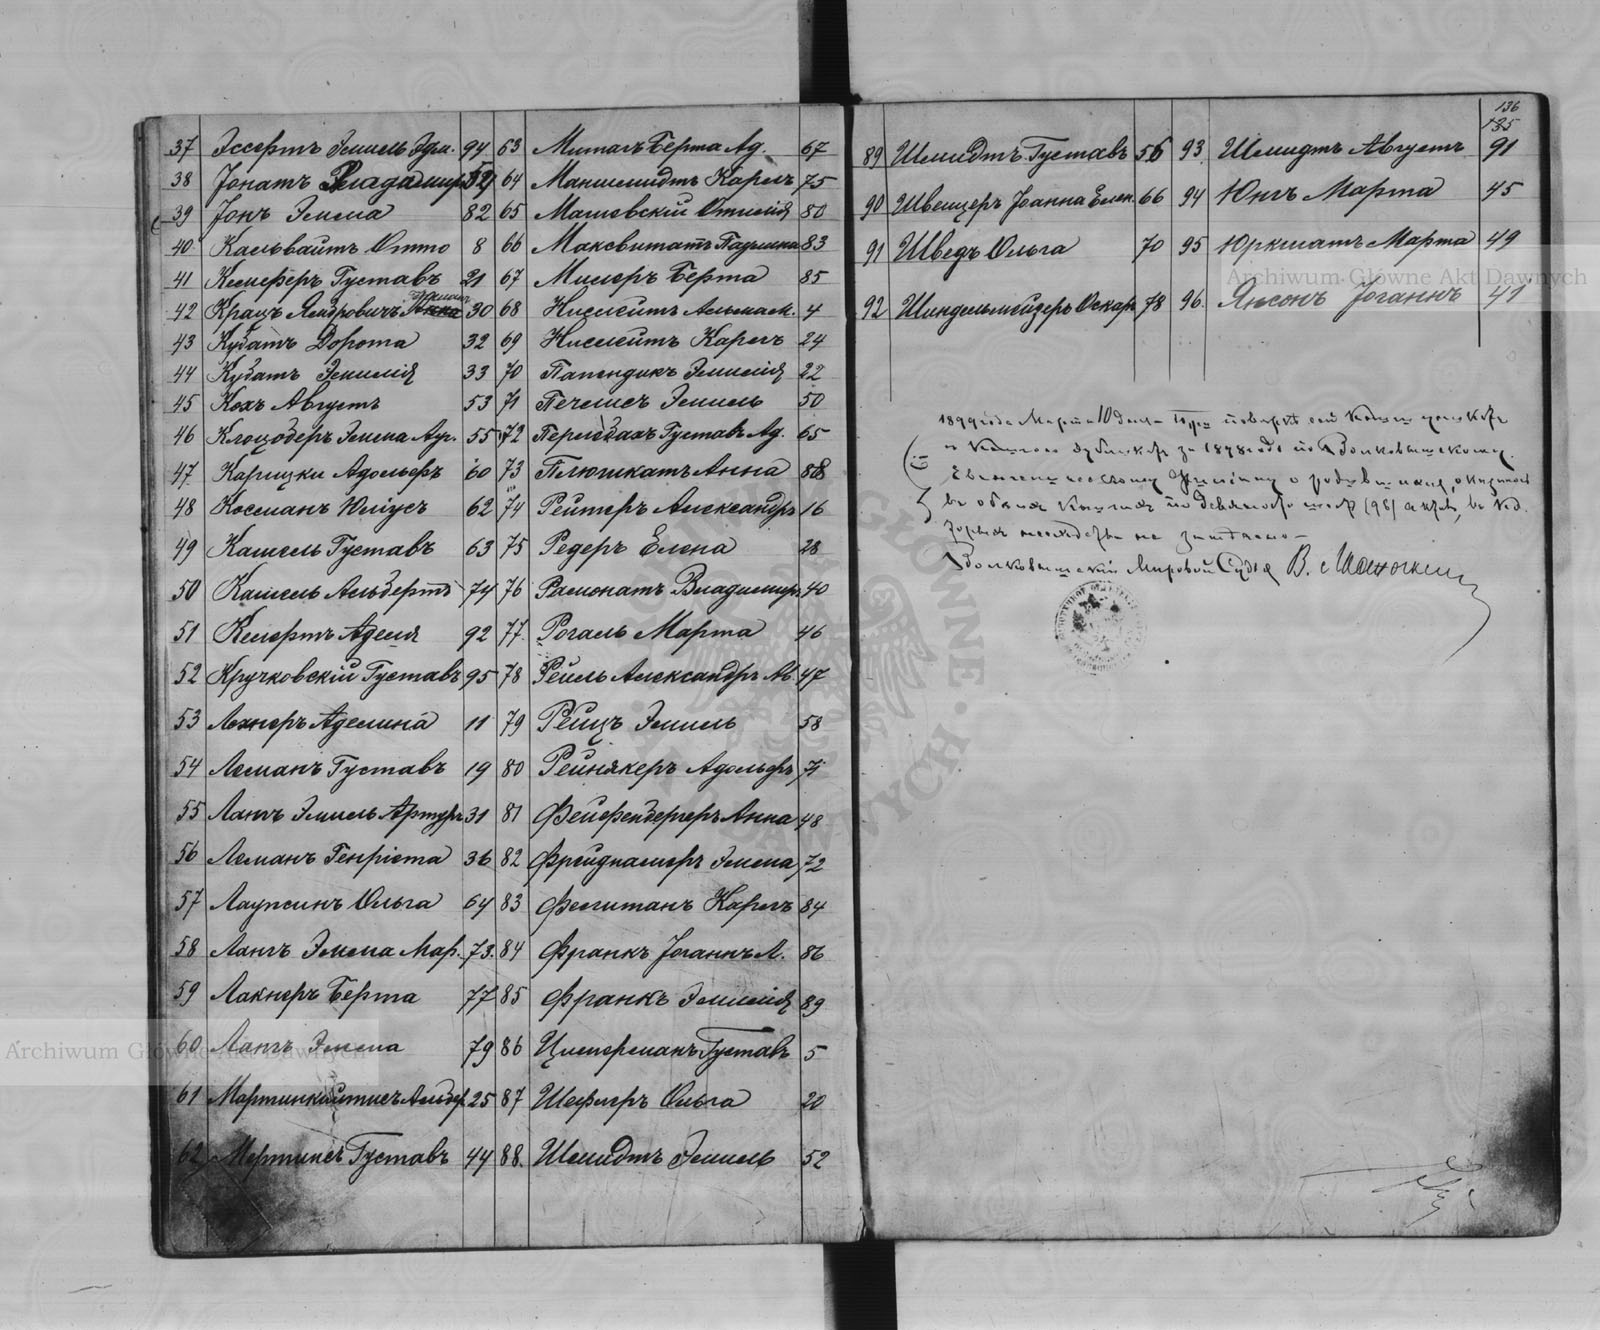 136
135
37 Эссертъ Эмиль Эдм. 94
38 Іонатъ Владимиръ 54
39 Іонъ Эмма 82
40 Касьвайтъ Отто 8
41 Клеферъ Густавъ 21
42 Крацъ 30
43 Кубатъ Дорота 32
44 Кубатъ Эмилія 33
45 Кохъ Августъ 53
46 Эмма Авг. 55
47 Карицки Адольфъ 60
48 Косманъ Юліусъ 62
49 Кашель Густавъ 63
50 Кашель Альбертъ 74
51 Клертъ Аделя 92
52 Кручковскій Густавъ 95
53 Лехнеръ Аделина 11
54 Леманъ Густавъ 19
55 Лангъ Эмиль Артуръ 31
56 Леманъ Генріета 36
57 Ольга 64
58 Лангъ Эмма Мар. 73.
59 Лакнеръ Берта 77
60 Лангъ Эмма 79
61 Мартинкайтисъ Альбер. 25
62 Мертинсъ Густавъ 44
63 Миталь Берта Ад. 67
64 Маншмидтъ Карлъ 75
65 Машевскій Отилія 80
66 Максвитатъ Паулина 83
67 Милеръ Берта 85
68 4
69 Карлъ 24
70 Папендикъ Эмилія 22
71 Эмиль 50
72 Перлебахъ Густавъ Ад. 65
73 Плюшкатъ Анна 88
74 Рейтеръ Александръ 16
75 Редеръ Елена 28
76 Рамонатъ Владимиръ 40
77. Рогаль Марта 46
78 Рейль Александръ Ав. 47
79 Рейцъ Эмиль 58
80 Рейнякеръ Адольфъ 71
81 Фейфенбергеръ Анна 48
82 Эмма 72
83 Карлъ 84
84 Франкъ Іоганнъ Л. 86
85 Франкъ Эмилія 89
86 Цимерманъ Густавъ 5
87 Шефлеръ Ольга 20
88. Шмидтъ Эмиль 52
89 Шмидтъ Густавъ 56
90 Швейцеръ Іоанна Елен. 66
91 Шведъ Ольга 70
92 Шиндельмейзеръ Оскаръ 78
93. Шмидтъ Августъ 91
94 Юнгъ Марта 45
95 Юркшатъ Марта 49
96. Янсонъ Іоганнъ 41
1899 года Марта 10 дня
за 1898 годъ по Волковышскому
Евангелическому о родившихся,
въ обѣихъ книгахъ по девяносто шесть (96) актовъ,
Волковышскій Мировой Судья
Archiwum Główne Akt Dawnych
Archiwum Główne Akt Dawnych